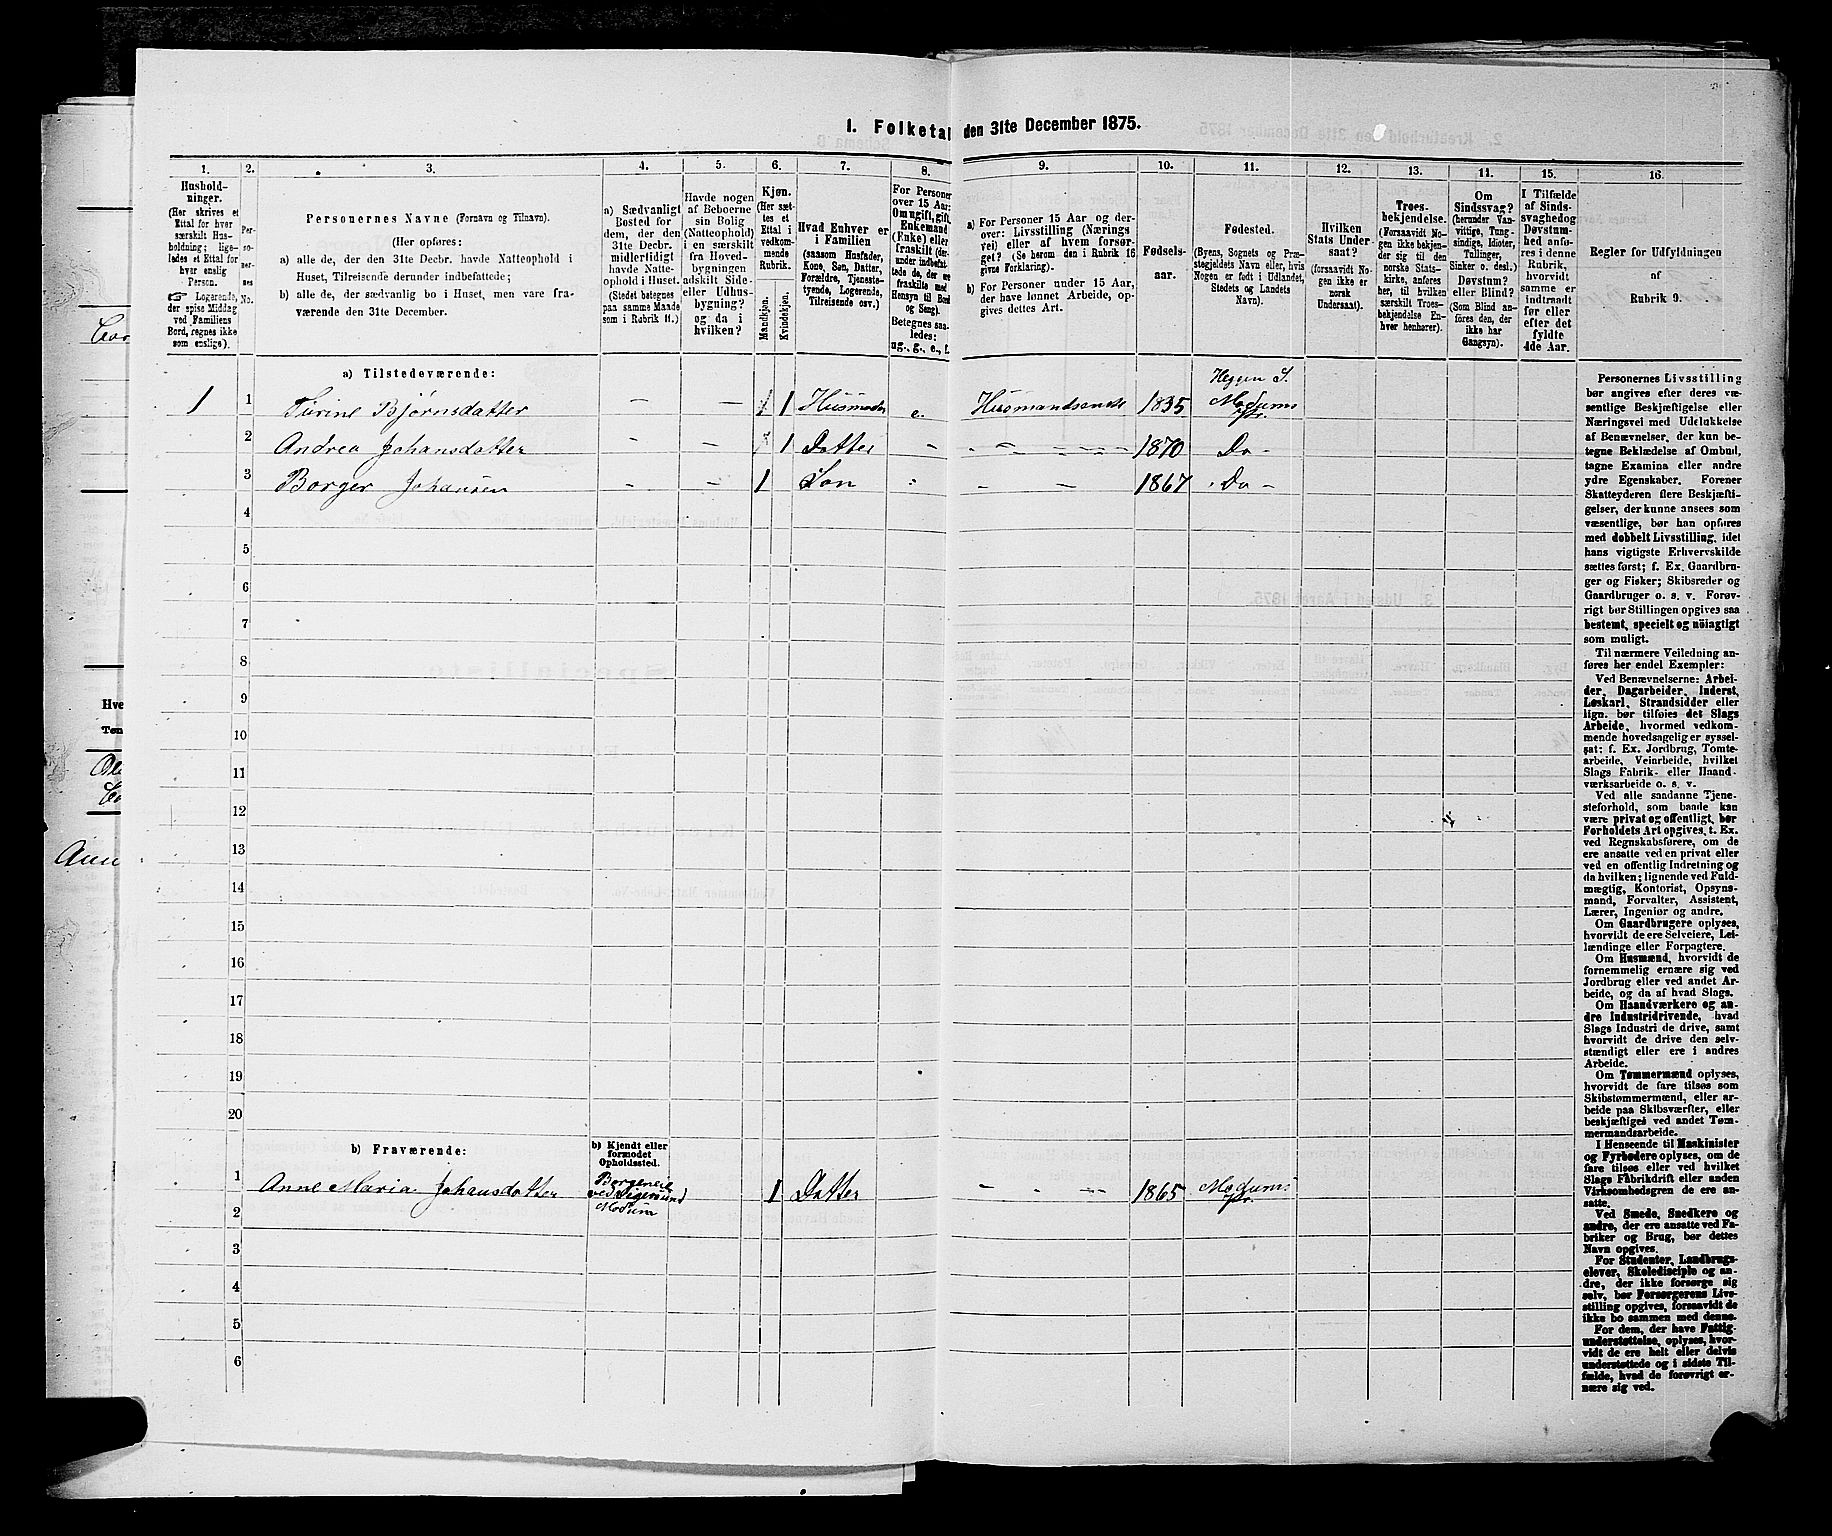 1. Folketal den 31te December 1875.
1. 2. 3. 4. 5. 6. 7. 8. 9. 10. 11. 12. 13. 14. 15. 16.
Hushold-
ninger.
(Her skrives et
Ettal for hver
særskilt Hus-
holdning; lige-
ledes et Ettal for
hver enslig
Person.
☞ Logerende,
der spise Middag
ved Familiens
Bord, regnes ikke
som enslige).
Per-
so-
ner-
nes
No.
Personernes Navne (Fornavn og Tilnavn).
(Her opføres:
a) alle de, der den 31te Decbr. havde Natteophold i
Huset, Tilreisende derunder indbefattede;
b) alle de, der sædvanlig bo i Huset, men vare fra-
værende den 31te December.
a) Sædvanligt
Bosted for
dem, der den
31te Decbr.
midlertidigt
havde Natte-
ophold i Huset.
(Stedet betegnes
paa samme Maade
som i Rubrik 11.)
Havde nogen
af Beboerne
sin Bolig
(Natteophold)
i en særskilt
fra Hoved-
bygningen
adskilt Side-
eller Udhus-
bygning?
og da i
hvilken?
Kjøn.
(Her sæt-
tes et
Ettal i
vedkom-
mende
Rubrik.
Mandkjøn.
Kvindekjøn.
Hvad Enhver er
i Familien
(saasom Husfader,
Kone, Søn, Datter,
Forældre, Tjeneste-
tyende, Logerende,
Tilreisende osv.)
For Personer
over 15 Aar:
Om ugift, gift,
Enkemand
(Enke) eller
fraskilt (der-
under indbefat-
tede de, der ere
fraskilte med
Hensyn til Bord
og Seng).
Betegnes saa-
ledes:
ug., g., e., f.
a) For Personer 15 Aar og der-
over: Livsstilling (Nærings
vei) eller af hvem forsør-
get? (Se herom den i Rubrik 16
givne Forklaring).
b) For Personer under 15 Aar,
der have lønnet Arbeide, op-
gives dettes Art.
Fødsels-
aar.
Fødested.
(Byens, Sognets og Præ-
stegjeldets Navn eller, hvis
Nogen er født i Udlandet,
Stedets og Landets
Navn).
Hvilken
Stats Under-
saat?
(forsaavidt No-
gen ikke er
norsk
Undersaat).
Troes-
bekjendelse.
(Forsaavidt No-
gen ikke bekjen-
der sig til den
norske Stats-
kirke, anføres
her, til hvilken
særskilt Troes-
bekjendelse En-
hver henhører).
Om
Sindssvag?
(herunder Van-
vittige, Tung-
sindige, Idioter,
Tullinger,
Sinker o. desl.)
Døvstum?
eller Blind?
(Som Blind an-
føres den, der
ikke har
Gangsyn).
I Tilfælde
af Sinds-
svaghed og
Døvstum-
hed anfø-
res i denne
Rubrik,
hvorvidt
samme er
indtraadt
før eller
efter det
fyldte
4de Aar.
Regler for Udfyldningen
af
Rubrik 9.
a) Tilstedeværende:
1 1 Turine Bjørnsdatter - - 1 Husmoder e. Husmandsenke 1835 Heggen S. Modums Pr.
2 Andrea Johansdatter - - 1 Datter - - - 1870 Do -
3 Borger Johansen - - 1 Søn - - 1867 Do -
4
5
6
7
8
9
10
11
12
13
14
15
16
17
18
19
20
b) Fraværende:
b) Kjendt eller
formodet
Opholdssted.
1 Anne Maria Johansdatter ved Modum 1 Datter - - - 1865 Modums Pr.
2
3
4
5
6
Personernes Livsstilling
bør angives efter deres væ-
sentlige Beskjæftigelse eller
Næringsvei med Udelukkelse
af Benævnelser, der kun be-
tegne Beklædelse af Ombud,
tagne Examina eller andre
ydre Egenskaber. Forener
Skatteyderen flere Beskjæfti-
gelser, der kunne ansees som
væsentlige, bør han opføres
med dobbelt Livsstilling, idet
hans vigtigste Erhvervskilde
sættes først; f. Ex. Gaardbru-
ger og Fisker; Skibsreder og
Gaardbruger o. s. v. Forøv-
rigt bør Stillingen opgives saa
bestemt, specielt og nöiagtigt
som muligt.
Til nærmere Veiledning an-
føres her endel Exempler:
Ved Benævnelserne: Arbei-
der, Dagarbeider, Inderst,
Løskarl, Strandsidder eller
lign. bør tilføies det Slags
Arbeide, hvormed vedkom-
mende hovedsagelig er syssel-
sat: f. Ex. Jordbrug, Tomte-
arbeide, Veiarbeide, hvilket
Slags Fabrik- eller Haand-
værksarbeide o. s. v.
Ved alle saadanne Tjene-
steforhold, som baade kan
være privat og offentligt, bør
Forholdets Art opgives, t. Ex.
ved Regnskabsførere, om de
ere ansatte ved en privat eller
ved en offentlig Indretning og
da hvilken; lignende ved Fuld-
mægtig, Kontorist, Opsyns-
mand, Forvalter, Assistent,
Lærer, Ingeniør og andre.
Om Gaardbrugere oplyses,
hvorvidt de ere Selveiere, Lei-
lændinge eller Forpagtere.
Om Husmænd, hvorvidt de
fornemmelig ernære sig ved
Jordbrug eller ved andet Ar-
beide, og da af hvad Slags.
Om Haandværkere og an-
dre Industridrivende, hvad
Slags Industri de drive, samt
hvorvidt de drive den selv-
stændigt eller ere i andres
Arbeide.
Om Tømmermænd oplyses,
hvorvidt de fare tilsøs som
Skibstømmermænd, eller ar-
beide paa Skibsværfter, eller
beskjæftiges ved andet Tøm-
mermandsarbeide.
I Henseende til Maskinister
og Fyrbødere oplyses, om de
fare tilsøs eller ved hvilket
Slags Fabrikdrift eller anden
Virksomhedsgren de ere an-
satte.
Ved Smede, Snedkere og
andre, der ere ansatte ved Fa-
briker og Brug, bør dettes
Navn opgives.
For Studenter, Landbrugs-
elever, Skoledisciple og an-
dre, der ikke forsørge sig
selv, bør Forsørgerens Livs-
stilling opgives, forsaavidt de
ikke bo sammen med denne.
For dem, der have Fattig-
understøttelse, oplyses, hvor-
vidt de ere helt eller delvis
understøttede og i sidste Til-
fælde, hvad de forøvrigt er-
nære sig ved.